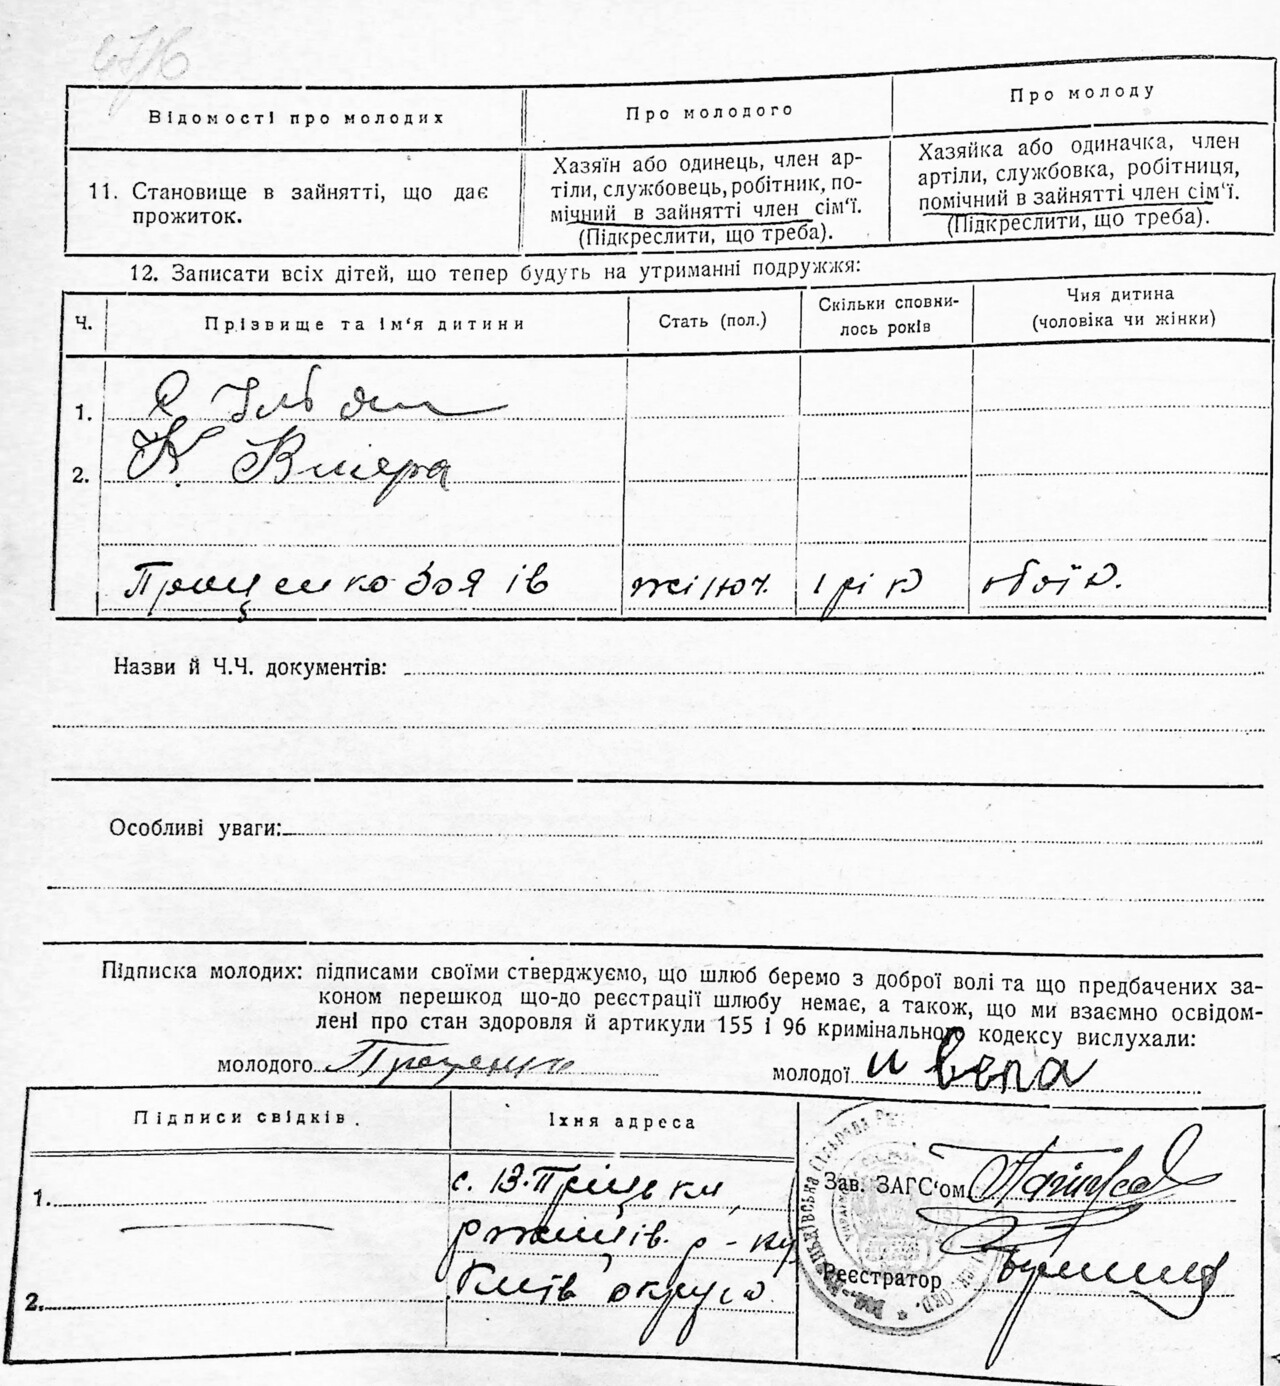 Відомості про молодих
Про молодого
Про молоду
11. Становище в зайнятті, що дає
прожиток.
Хазяїн або одинець, член ар-
тілі, службовець, робітник, по-
мічний в зайнятті член сім'ї.
(Підкреслити, що треба).
Хазяйка або одиначка, член
артілі, службовка, робітниця,
помічний в зайнятті член сім'ї.
(Підкреслити, що треба).
12. Записати всіх дітей, що тепер будуть на утриманні подружжя:
Ч.
Прізвище та ім'я дитини
Стать (пол.)
Скільки сповни-
лось років
Чия дитина
(чоловіка чи жінки)
1.
2.
Проценко Зоя ів жіноч. 1 рік обоїх.
Назви й Ч.Ч. документів:
Особливі уваги:
Підписка молодих: підписами своїми стверджуємо, що шлюб беремо з доброї волі та що предбачених за-
коном перешкод що-до реєстрації шлюбу немає, а також, що ми взаємно освідом-
лені про стан здоровля й артикули 155 і 96 кримінального кодексу вислухали:
молодого Проценко
молодої
Підписи свідків.
Їхня адреса
1.
с. В-Пріцьки
р-ну
Київ округа
2.
Зав. ЗАГС'ом
Реєстратор